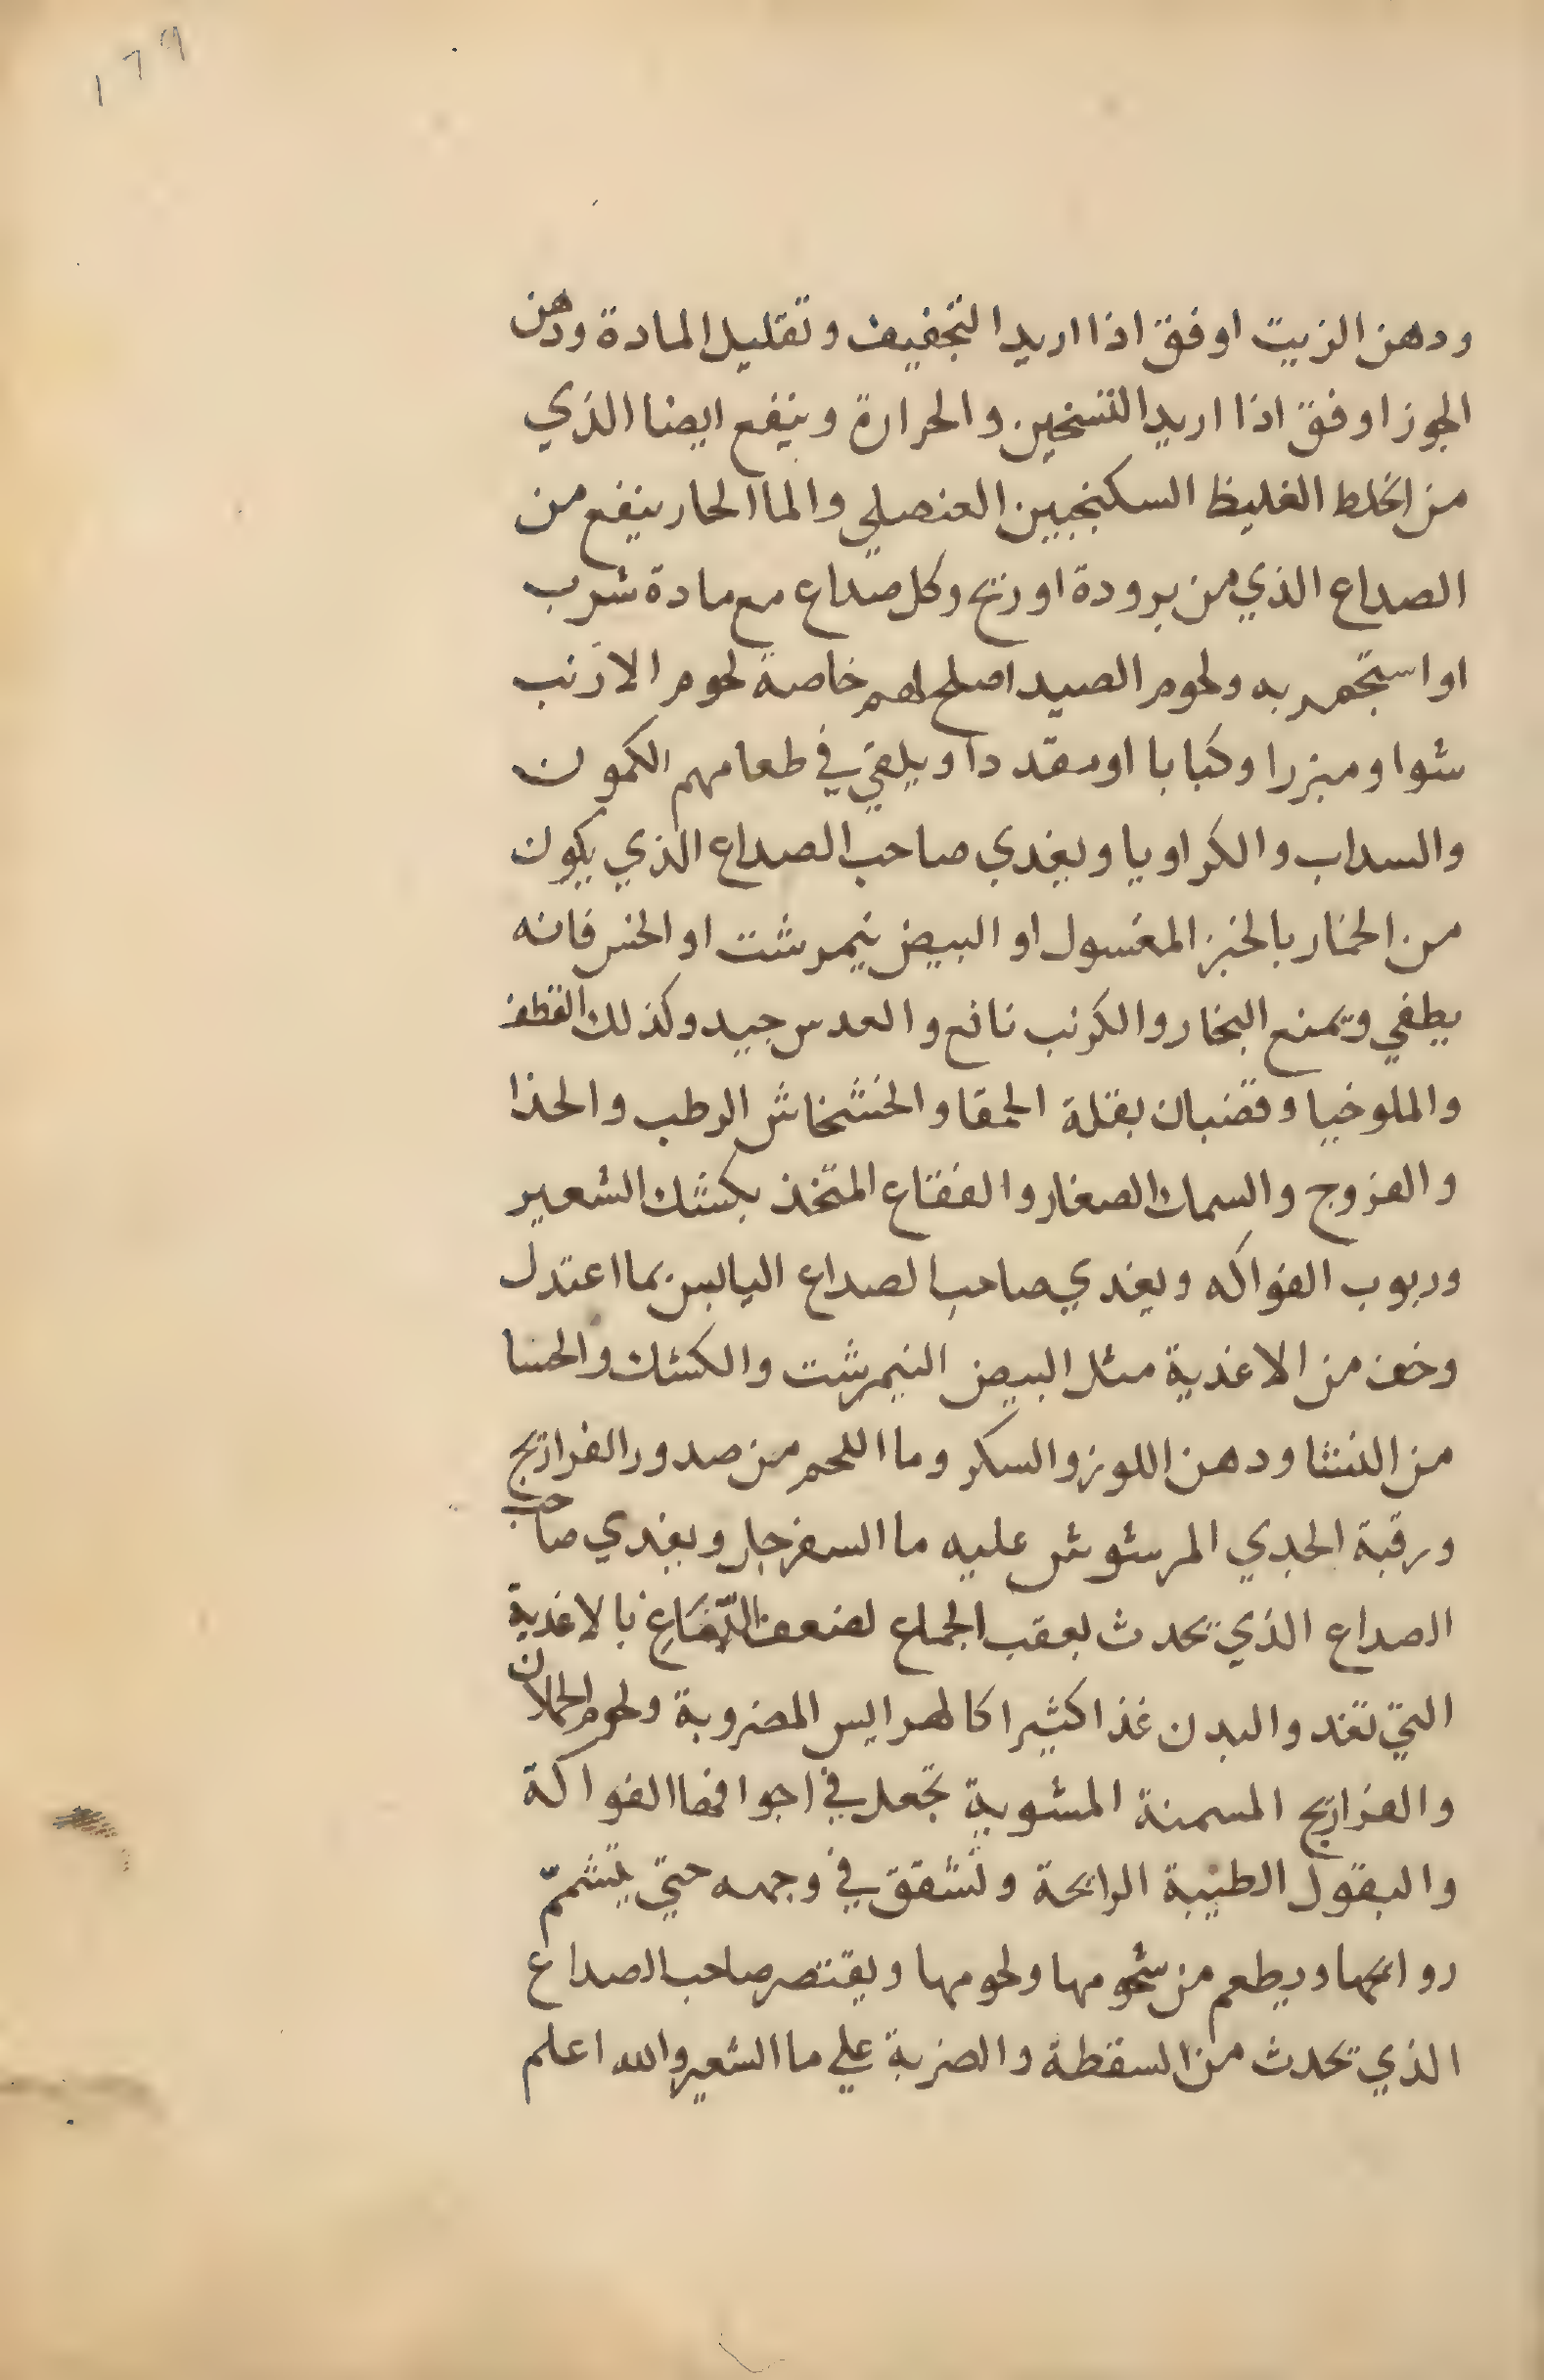 ١٦٩
ودهن الزيت اوفق اذا اريد التجفيف وتقليل المادة ودهن
الجوز اوفق اذا اريد التسخين والحرارة وينفع ايضا الذي
من الخلط الغليظ السكنجبين العنصلي والما الحار ينفع من
الصداع الذي من برودة او ريح وكل صداع مع مادة شرب
او استجمر به ولحوم الصيد اصلح لهم خاصة لحوم الارنب
شوا ومبزرا وكبابا او مقددا ويلقي في طعامهم الكمون
والسداب والكراويا ويغدي صاحب الصداع الذي يكون
من الخمار بالخبز المغسول او البيض نيمرشت او الخس فانه
يطفي ويمنع البخار والكرنب نافع والعدس جيد وكذلك القطف
والملوخيا وقضبان بقلة الحمقا والخشخاش الرطب والحذا
والفروج والسمك الصغار والفقاع المتخذ بكشك الشعير
وربوب الفواكه ويغدي صاحب الصداع اليابس بما اعتدل
وخف من الاغذية مثل البيض النيمرشت والكشك والحسا
من النشا ودهن اللوز والسكر وما اللحم من صدور الفراريج
ورقبة الجدي المرشوش عليه ما السفرجل ويغدي صاحب
الصداع الذي يحدث بعقب الجماع لضعف الدّمَاغِ بالاغذية
التي تغدو البدن غذا كثيرا كالهرايس المضروبة ولحوم الحملان
والفراريج المسمنة المشوية تجعل في اجوافها الفواكة
والبقول الطيبة الرايحة وتشقق في وجهه حتي يتشممّ
روايحها ويطعم من شحومها ولحومها ويقتصر صاحب الصداع
الذي يحدث من السقطة والضربة علي ما الشعير والله اعلم